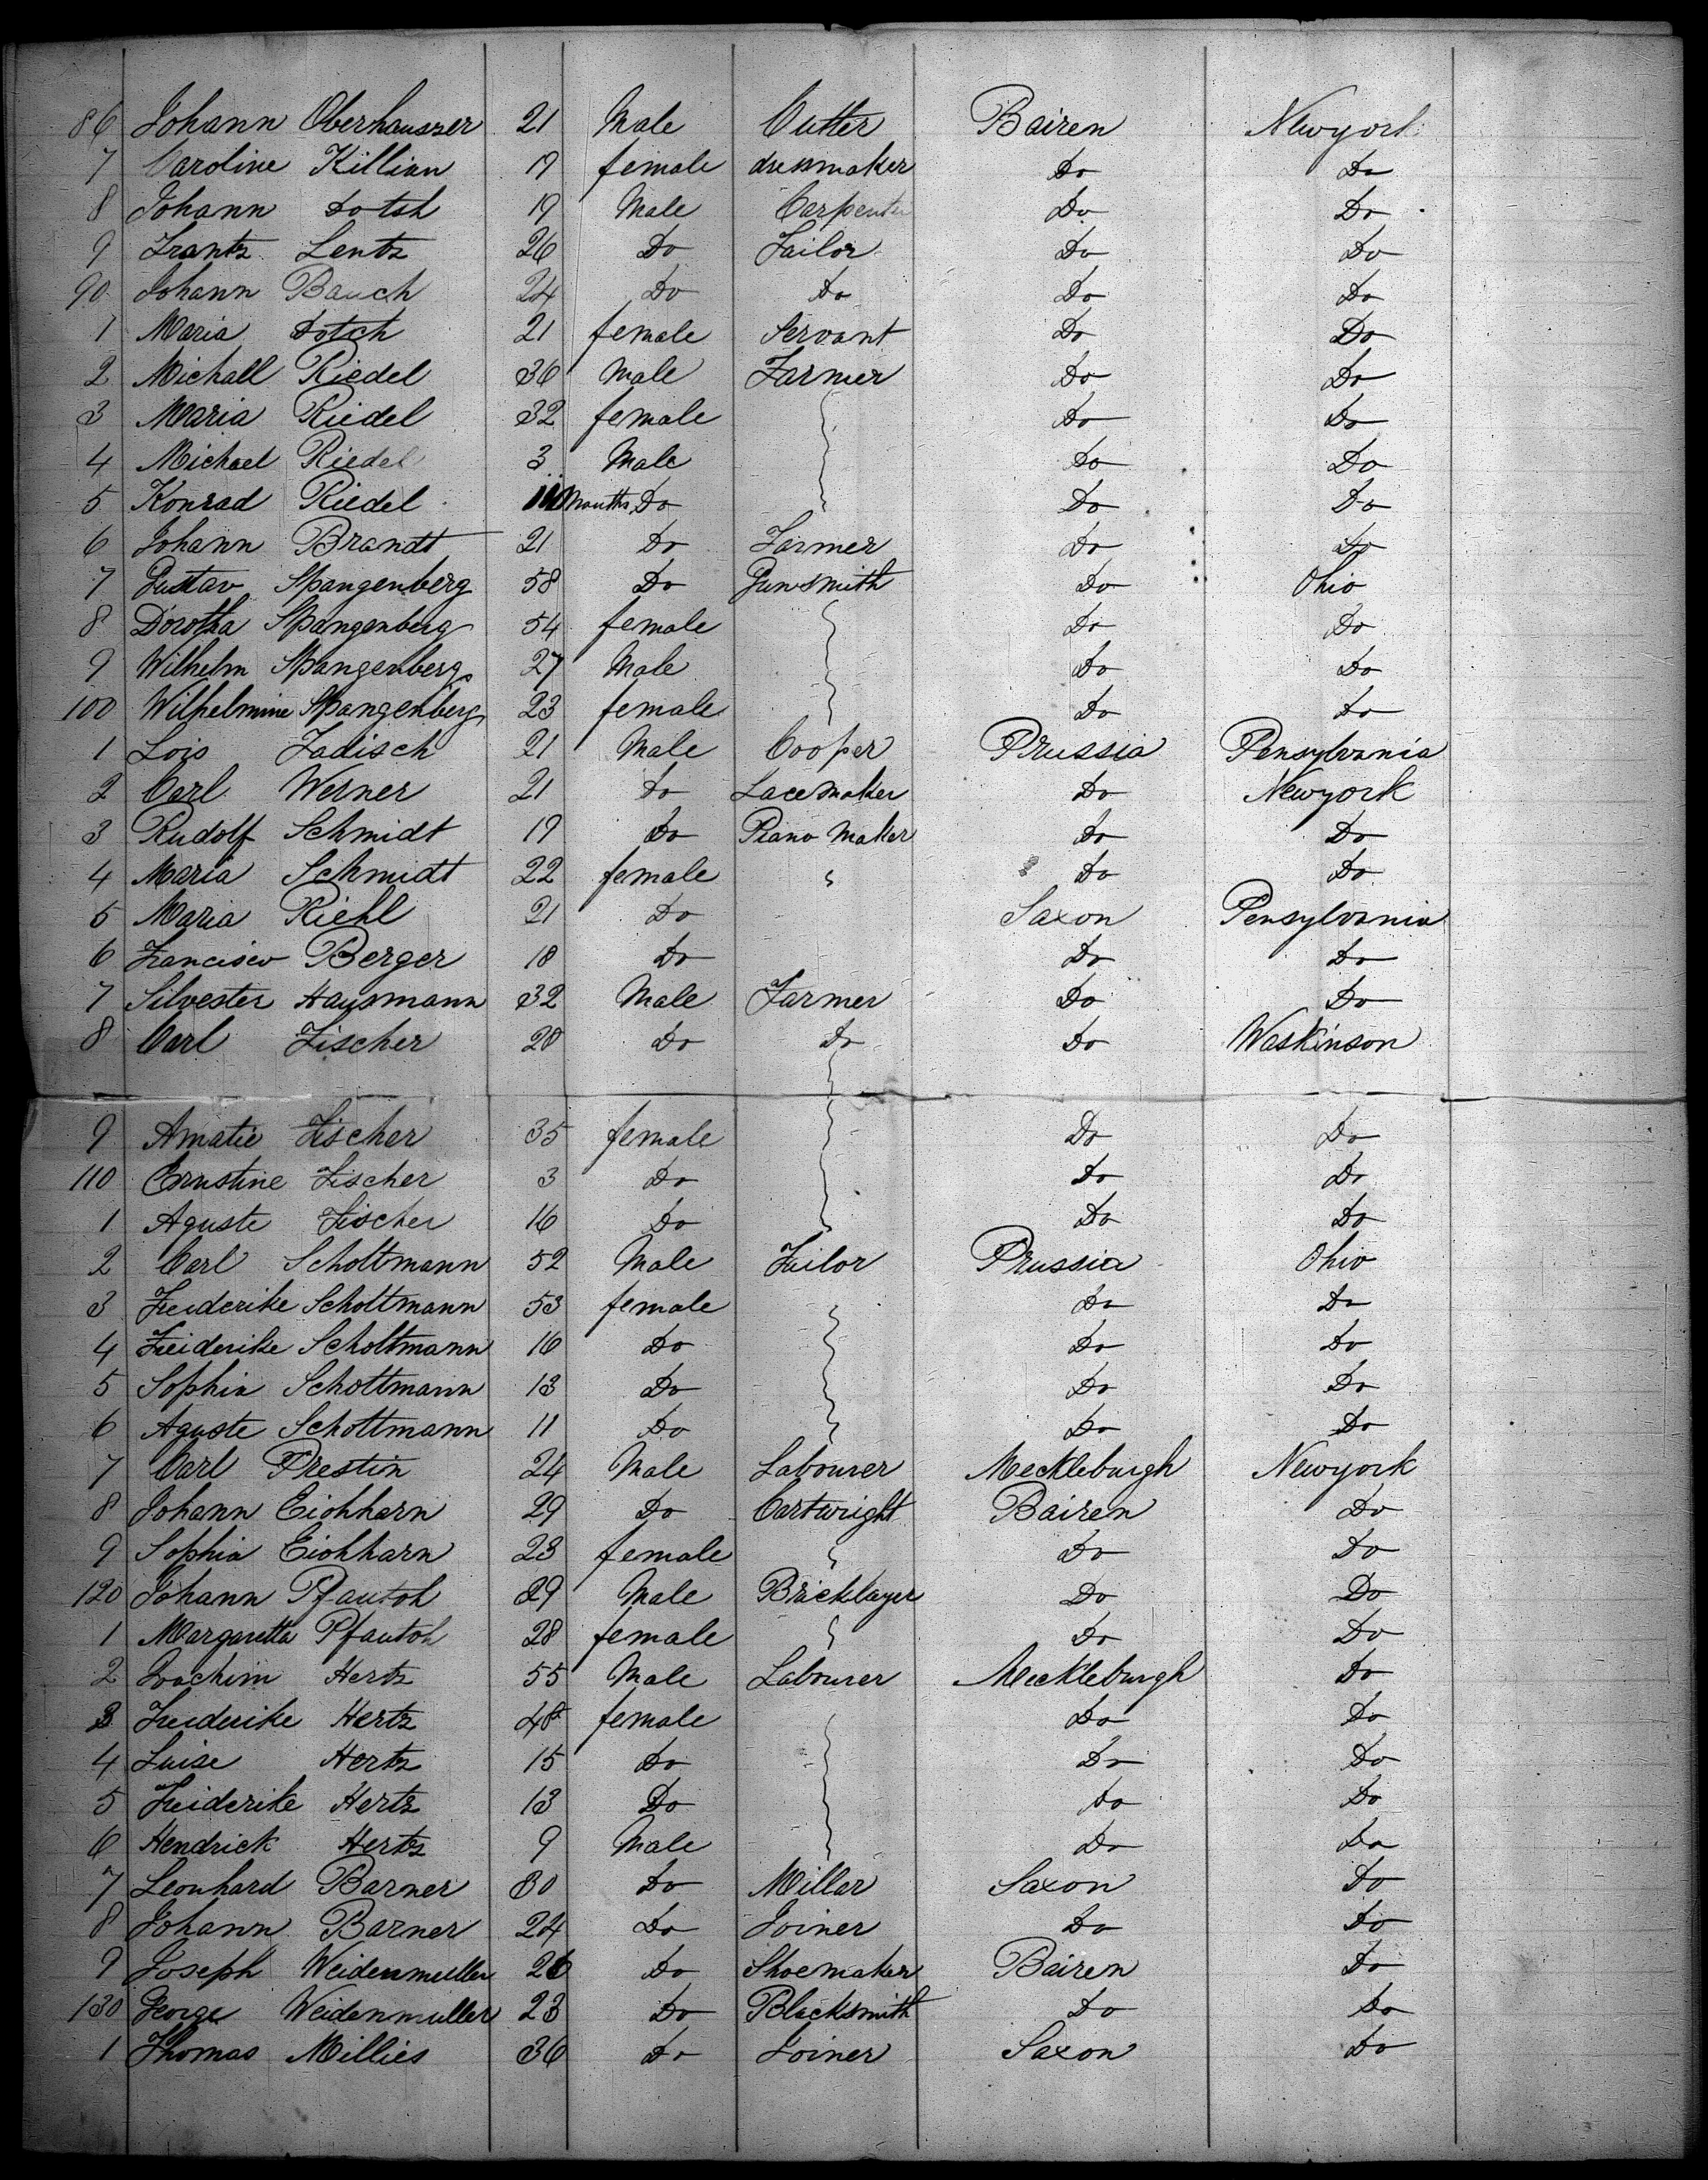 86 Johann Oberhausser 21 Male Cutter Bairen Newyork
7 Caroline Killian 19 female dressmaker Do Do
8 Johann Dotsh 19 Male Carpenter Do Do
9 Frantz Lentz 26 Do Tailor Do Do
90 Johann Bauch 24 Do Do Do Do
1 Maria Dotch 21 female Servant Do Do
2 Michall Riedel 36 Male Farmer Do Do
3 Maria Riedel 32 female Do Do
4 Michael Riedel 3 Male Do Do
5 Konrad Riedel Months Do Do Do
6 Johann Brandt 21 Do Farmer Do Do
7 Gustav Spangenberg 58 Do Gunsmith Do Ohio
8 Dorotha Spangenberg 54 female Do Do
9 Wilhelm Spangenberg 27 Male Do Do
100 Wilhelmine Spangenberg 23 female Do Do
1 Lois Fadisch 21 Male Cooper Prussia Pensylvania
2 Carl Werner 21 Do Lacemaker Do Newyork
3 Rudolf Schmidt 19 Do Piano Maker Do Do
4 Maria Schmidt 22 female Do Do
5 Maria Riehl 21 Do Saxon Pensylvania
6 Francisco Berger 18 Do Do Do
7 Silvester Hausmann 32 Male Farmer Do Do
8 Carl Fischer 28 Do Do Do Waskinson
9 Amatie Fischer 35 female Do Do
110 Ernustine Fischer 3 Do Do Do
1 Aguste Fischer 16 Do Do Do
2 Carl Scholtmann 52 Male Tailor Prussia Ohio
3 Freiderike Scholtmann 53 female Do Do
4 Freiderike Scholtmann 16 Do Do Do
5 Sophia Schottmann 13 Do Do Do
6 Aguste Schottmann 11 Do Do Do
7 Carl Prestin 24 Male Labourer Meckleburgh Newyork
8 Johann Eichharn 29 Do Cartwright Bairen Do
9 Sophia Eichharn 23 female Do Do
120 Johann Pfautch 29 Male Bricklayer Do Do
1 Margaretta Pfautch 28 female Do Do
2 Joachim Hertz 55 Male Labourer Meckleburgh Do
3 Freiderike Hertz 48 female Do Do
4 Luise Hertz 15 Do Do Do
5 Freiderike Hertz 13 Do Do Do
6 Hendrick Hertz 9 Male Do Do
7 Leonhard Barner 30 Do Millar Saxon Do
8 Johann Barner 24 Do Joiner Do Do
9 Joseph Weidenmuller 26 Do Shoemaker Bairen Do
130 George Weidenmuller 23 Do Blacksmith Do Do
1 Thomas Millies 36 Do Joiner Saxon Do